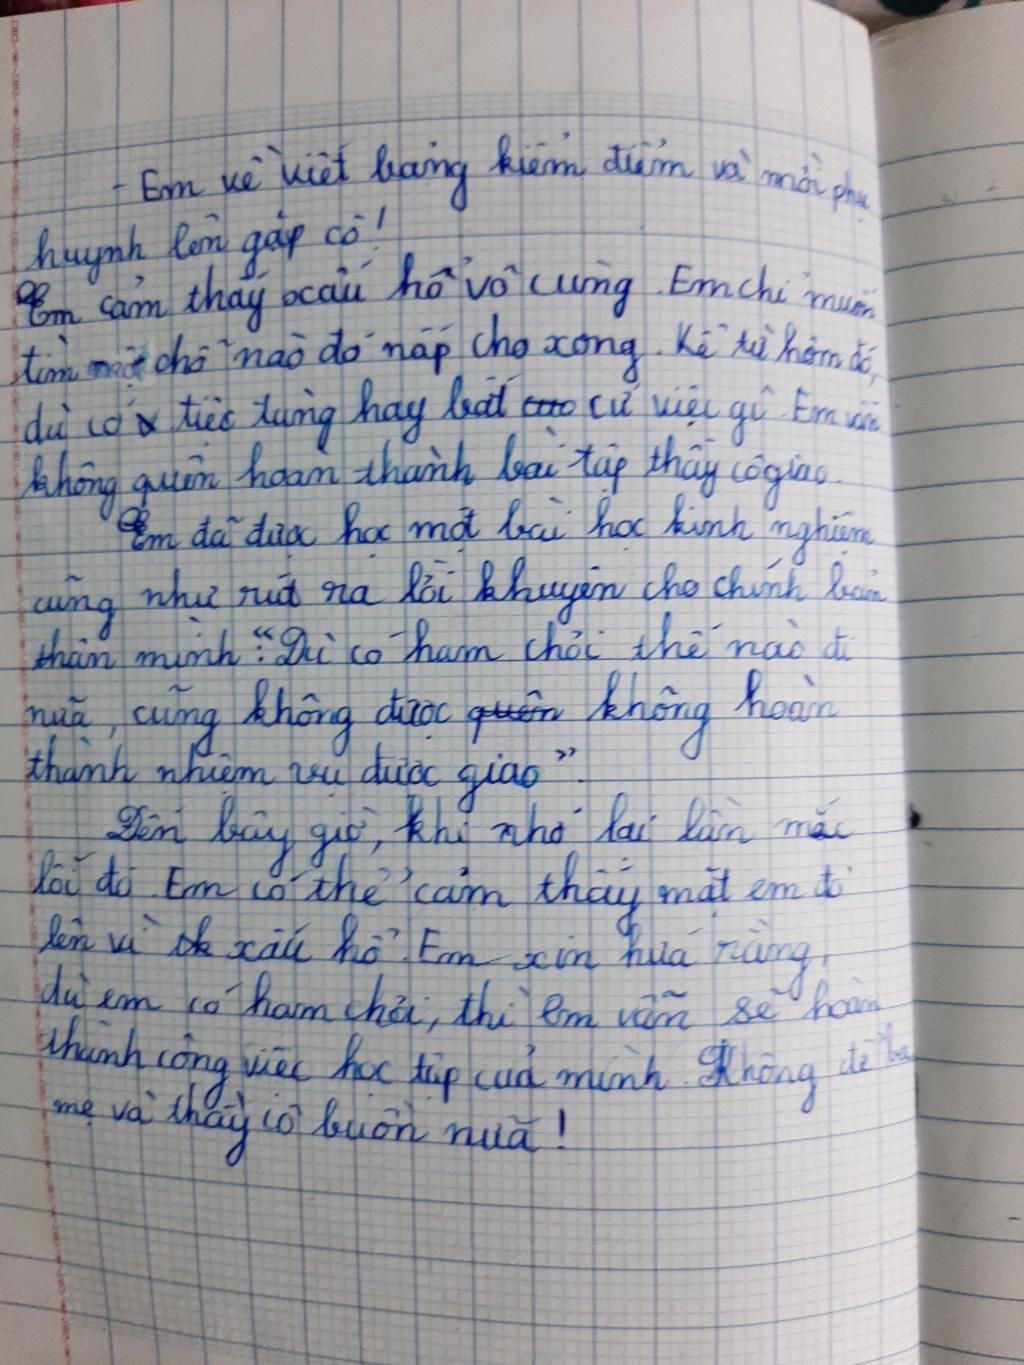 - Em về viết bảng kiểm điểm và mời phụ
huynh lên gặp cô!
Em cảm thấy xấu hổ vô cùng. Em chỉ muốn
tìm một chỗ nào đó nấp cho xong. Kể từ hôm đó,
dù có tiệc tùng hay bất cứ việc gì. Em vẫn
không quên hoàn thành bài tập thầy cô giao.
Em đã được học một bài học kinh nghiệm
cũng như rút ra lời khuyên cho chính bản
thân mình: "Dù có ham chơi thế nào đi
nữa, cũng không được quên không hoàn
thành nhiệm vụ được giao".
Đến bây giờ, khi nhớ lại lần mắc
lỗi đó. Em có thể cảm thấy mặt em đỏ
lên vì xấu hổ. Em xin hứa rằng,
dù em có ham chơi, thì em vẫn sẽ hoàn
thành công việc học tập của mình. Không để ba
mẹ và thầy cô buồn nữa!